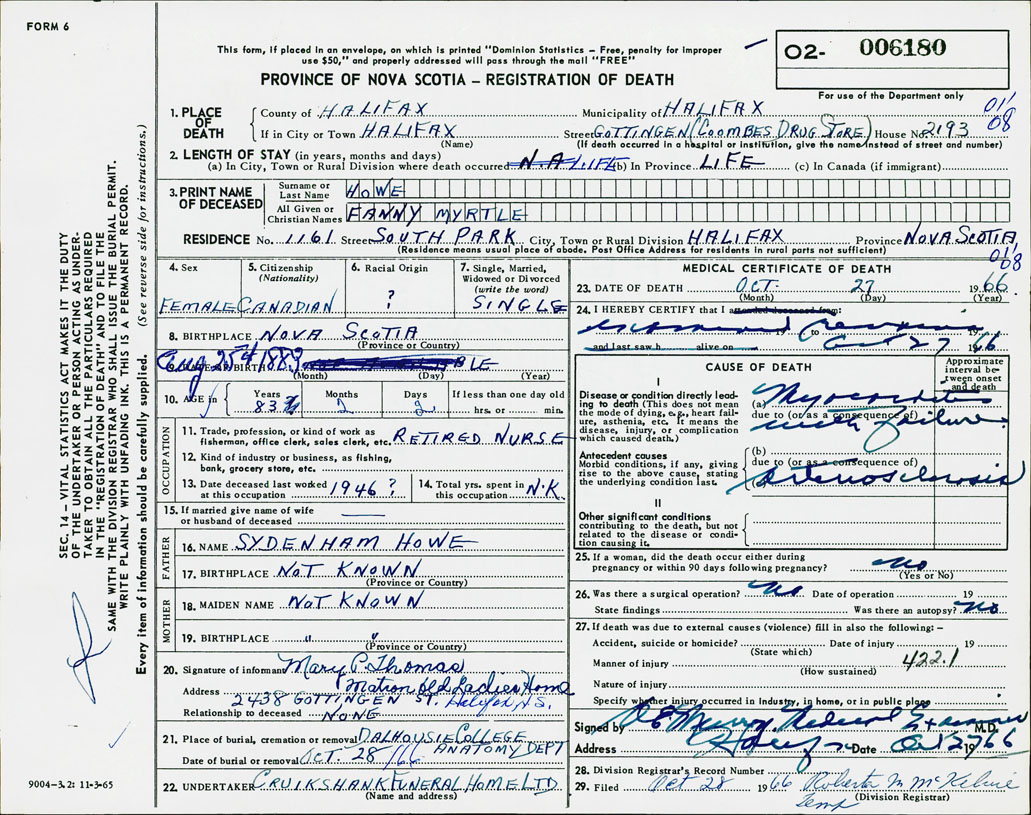 FORM 6
This form, if placed in an envelope, on which is printed "Dominion Statistics – Free, penalty for improper
use $50," and properly addressed will pass through the mail "FREE"
PROVINCE OF NOVA SCOTIA – REGISTRATION OF DEATH
O2- 006180
For use of the Department only
01/08
1. PLACE OF DEATH
County of HALIFAX Municipality of HALIFAX
If in City or Town HALIFAX Street GOTTINGEN (COOMBES DRUG STORE) House No. 2193
(Name) (If death occurred in a hospital or institution, give the name instead of street and number)
2. LENGTH OF STAY (in years, months and days)
(a) In City, Town or Rural Division where death occurred N.A LIFE (b) In Province LIFE (c) In Canada (if immigrant)
3. PRINT NAME OF DECEASED
Surname or Last Name HOWE
All Given or Christian Names FANNY MYRTLE
RESIDENCE No. 1161 Street SOUTH PARK City, Town or Rural Division HALIFAX Province NOVA SCOTIA
(Residence means usual place of abode. Post Office Address for residents in rural parts not sufficient)
01/08
4. Sex
FEMALE
5. Citizenship
(Nationality)
CANADIAN
6. Racial Origin
?
7. Single, Married,
Widowed or Divorced
(write the word)
SINGLE
8. BIRTHPLACE NOVA SCOTIA
(Province or Country)
Aug 25th 1883
(Month) (Day) (Year)
10. AGE in
Years Months Days If less than one day old
83 2 2 hrs. or min.
OCCUPATION
11. Trade, profession, or kind of work as
fisherman, office clerk, sales clerk, etc. RETIRED NURSE
12. Kind of industry or business, as fishing,
bank, grocery store, etc.
13. Date deceased last worked
at this occupation 1946 ?
14. Total yrs. spent in
this occupation N.K.
15. If married give name of wife
or husband of deceased
FATHER
16. NAME SYDENHAM HOWE
17. BIRTHPLACE NOT KNOWN
(Province or Country)
MOTHER
18. MAIDEN NAME NOT KNOWN
19. BIRTHPLACE " "
(Province or Country)
20. Signature of informant Mary P. Thomas
Address Matron Old Ladies Home
2438 GOTTINGEN ST. Halifax N.S.
Relationship to deceased NONE
21. Place of burial, cremation or removal DALHOUSIE COLLEGE
ANATOMY DEPT
Date of burial or removal OCT. 28/66
22. UNDERTAKER CRUIKSHANK FUNERAL HOME LTD
(Name and address)
MEDICAL CERTIFICATE OF DEATH
23. DATE OF DEATH OCT. 27 1966
(Month) (Day) (Year)
24. I HEREBY CERTIFY that I attended deceased from:
19 to 19
and last saw h alive on Oct 27 1966
CAUSE OF DEATH
Approximate interval between onset and death
I
Disease or condition directly leading to death (This does not mean
the mode of dying, e.g., heart failure, asthenia, etc. It means the
disease, injury, or complication
which caused death.)
(a) Myocarditis
due to (or as a consequence of)
with failure
Antecedent causes
Morbid conditions, if any, giving
rise to the above cause, stating
the underlying condition last.
(b)
due to (or as a consequence of)
Arteriosclerosis
II
Other significant conditions
contributing to the death, but not
related to the disease or condition causing it.
25. If a woman, did the death occur either during
pregnancy or within 90 days following pregnancy? No
(Yes or No)
26. Was there a surgical operation? No Date of operation 19
State findings Was there an autopsy? No
27. If death was due to external causes (violence) fill in also the following: –
Accident, suicide or homicide? Date of injury 19
(State which)
Manner of injury 422.1
(How sustained)
Nature of injury
Specify whether injury occurred in industry, in home, or in public place
Signed by Murray Medical Examiner M.D.
Address Date Oct 27 1966
28. Division Registrar's Record Number
29. Filed Oct 28 1966 Roberta M McKelvie
Temp (Division Registrar)
SEC. 14 – VITAL STATISTICS ACT MAKES IT THE DUTY
OF THE UNDERTAKER OR PERSON ACTING AS UNDERTAKER TO OBTAIN ALL THE PARTICULARS REQUIRED
IN THE "REGISTRATION OF DEATH" AND TO FILE THE
SAME WITH THE DIVISION REGISTRAR WHO SHALL ISSUE THE BURIAL PERMIT.
WRITE PLAINLY WITH UNFADING INK. THIS IS A PERMANENT RECORD.
Every item of information should be carefully supplied. (See reverse side for instructions.)
9004-3.2: 11-3-65